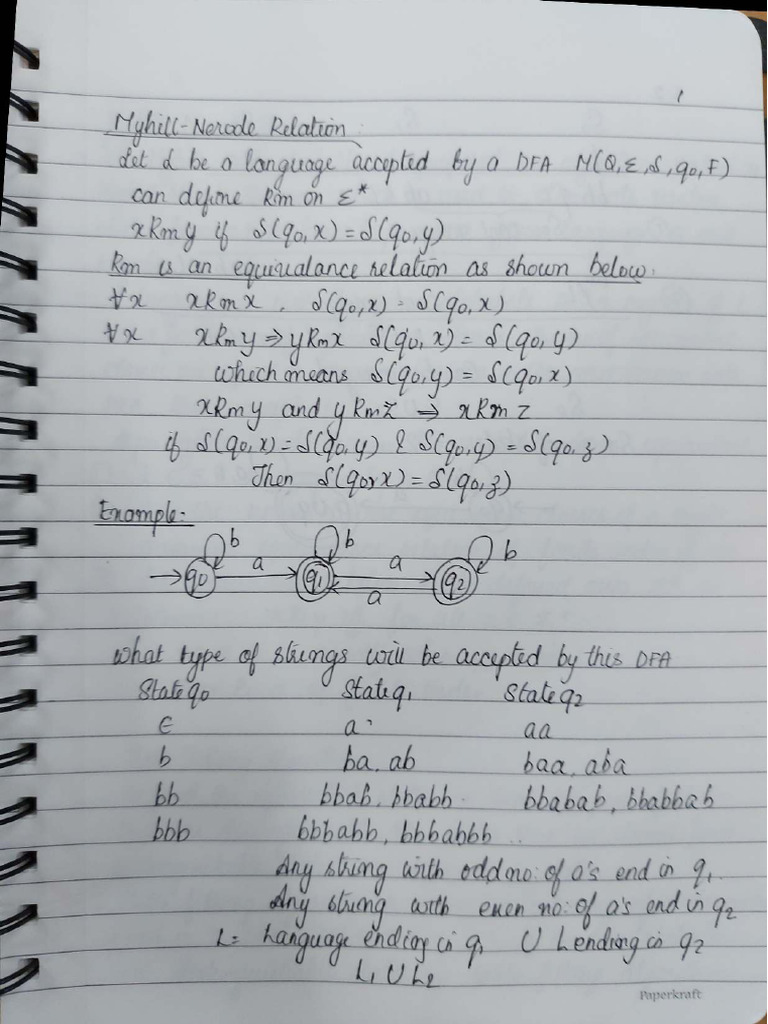 1
Myhill-Nerode Relation:
Let L be a language accepted by a DFA M(Q, Σ, δ, q0, F)
can define Rm on Σ*
xRmy if δ(q0, x) = δ(q0, y)
Rm is an equiualance relation as shown below:
∀x xRmx. δ(q0, x) = δ(q0, x)
∀x xRmy ⇒ yRmx δ(q0, x) = δ(q0, y)
which means δ(q0, y) = δ(q0, x)
xRmy and yRmz ⇒ xRmz
if δ(q0, x) = δ(q0, y) & δ(q0, y) = δ(q0, z)
Then δ(q0, x) = δ(q0, z)
Example:
b b b
q0 a q1 a q2
a
What type of strings will be accepted by this DFA
State q0 State q1 State q2
ϵ a aa
b ba, ab baa, aba
bb bbab, bbabb. bbabab, bbabbab
bbb bbbabb, bbbabbb ..
Any string with odd no: of a's end in q1.
Any string with even no: of a's end in q2
L = Language ending in q1 ∪ L ending in q2
L1 ∪ L2
Paperkraft